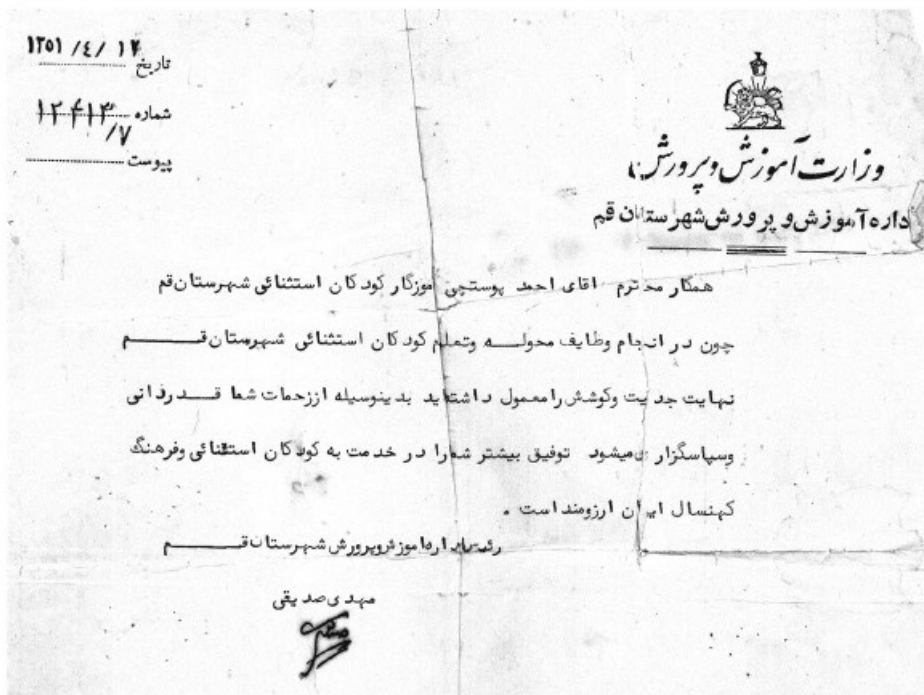 ۱۳۵۱ /٤/ ۱۷
تاریخ
شماره ۱۲۴۱۳/۷
پیوست
وزارت آموزش و پرورش
اداره آموزش و پرورش شهرستان قم
همکار محترم اقای احمد پوستچی اموزگار کودکان استثنائی شهرستان قم
چون در انجام وظایف محوله وتعلم کودکان استثنائی شهرستان قم
نهایت جدیت وکوشش را معمول داشته‌اید بدینوسیله اززحمات شما قدردانی
وسپاسگزاری میشود توفیق بیشتر شمارا در خدمت به کودکان استثنائی وفرهنگ
کهنسال ایران ارزومند است .
رئیس اداره اموزش وپرورش شهرستان قم
مهدی صدیقی